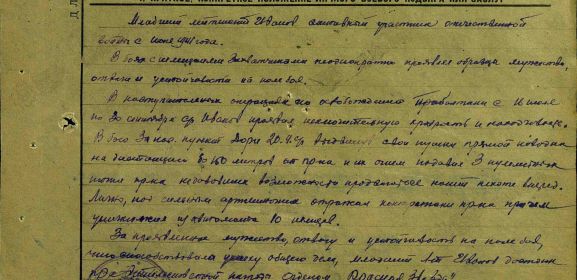 КРАТКОЕ, КОНКРЕТНОЕ ИЗЛОЖЕНИЕ ЛИЧНОГО БОЕВОГО ПОДВИГА ИЛИ ЗАСЛУГ
Младший лейтенант Иванов активный участник отечественной
войны с июня 1941 года.
В боях с немецкими захватчиками неоднократно проявлял образцы мужества,
отваги и устойчивости на поле боя.
В наступательных операциях по освобождению Прибалтики с 16 июля
по 30 сентября с/г Иванов проявил исключительную храбрость и находчивость.
В бою за нас. пункт 20.9.с/г свои пушки прямой наводки
на дистанцию до 150 метров от пр-ка и их огнем подавил 3 пулеметных
точки пр-ка возможность продвигаться нашей пехоте вперед.
Лично, под сильным отражал контратаки пр-ка причем
уничтожил из автомата 10 немцев.
За проявленное мужество, отвагу и устойчивость на поле боя,
успеху общего дела, младший л-т Иванов достоин
награды Орденом "Красная Звезда"